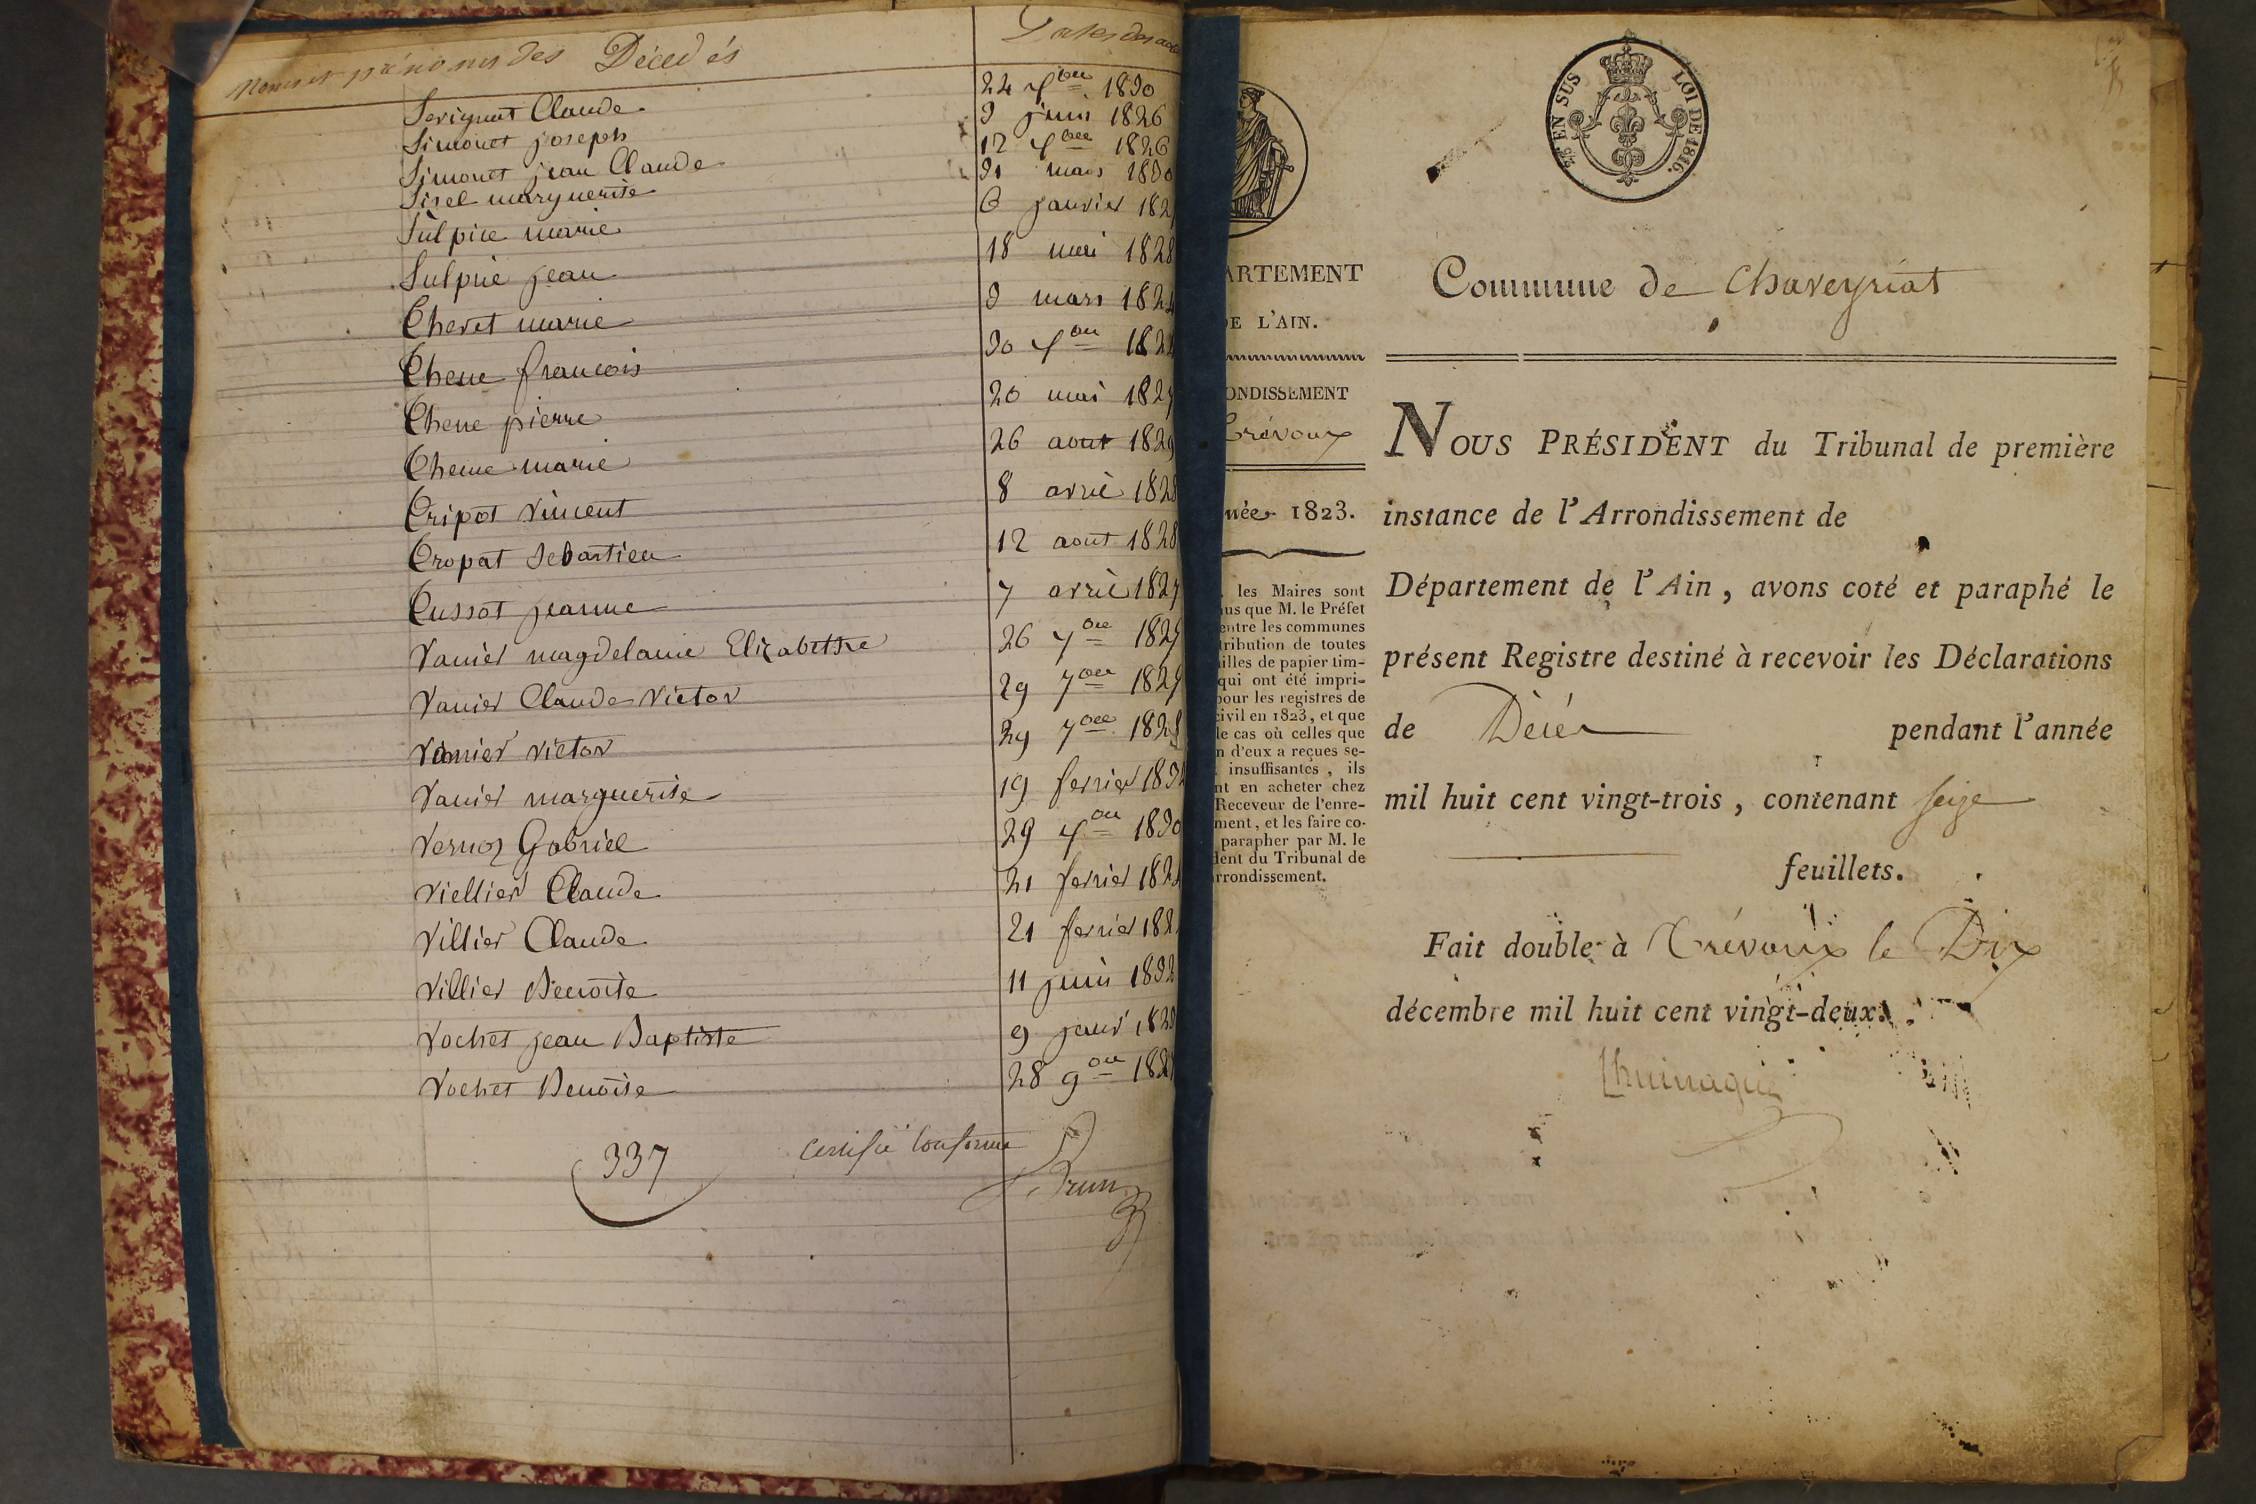 Noms et prénoms des Décedés
Dates des actes
Serignat Claude 24 Xbre 1830
Simonet joseph 9 juin 1826
Simonet jean Claude 12 Xbre 1826
Sirel marguerite 31 mars 1830
Sulpice marie 6 janvier 182
Sulprie jean 18 mai 1828
Thevet marie 9 mars 1824
Thene francois 30 Xbre 182
Thene pierre 20 mai 182
Thene marie 26 aout 1829
Tripot Vincent 8 avril 1828
Tropat Sebastien 12 aout 1828
Tussot jeanne 7 avril 182
Vanier magdelaine Elizabethe 26 7bre 182
Vanier Claude Victor 29 7bre 182
Vanier Victor 29 7bre 182
Vanier marguerite 19 fevrier 183
Vernoz Gabriel 29 Xbre 1830
Viellier Claude 21 fevrier 182
Villier Claude 21 fevrier 182
Villier Benoite 11 juin 1832
Vochet jean Baptiste 9 janvr 182
Vochet Benoite 28 9bre 182
337
certifié conforme
Brun
EN SUS LOI DE 1816.
ARTEMENT
DE L'AIN.
ONDISSEMENT
Trévoux
née 1823.
les Maires sont
us que M. le Préfet
entre les communes
tribution de toutes
illes de papier tim-
qui ont été impri-
pour les registres de
civil en 1823, et que
le cas où celles que
n d'eux a reçues se-
insuffisantes, ils
nt en acheter chez
Receveur de l'enre-
ment, et les faire co-
parapher par M. le
dent du Tribunal de
rrondissement.
Commune de Chaveyriat
NOUS PRÉSIDENT du Tribunal de première
instance de l'Arrondissement de
Département de l'Ain, avons coté et paraphé le
présent Registre destiné à recevoir les Déclarations
de Décés pendant l'année
mil huit cent vingt-trois, contenant seize
feuillets.
Fait double à Trévoux le Dix
décembre mil huit cent vingt-deux.